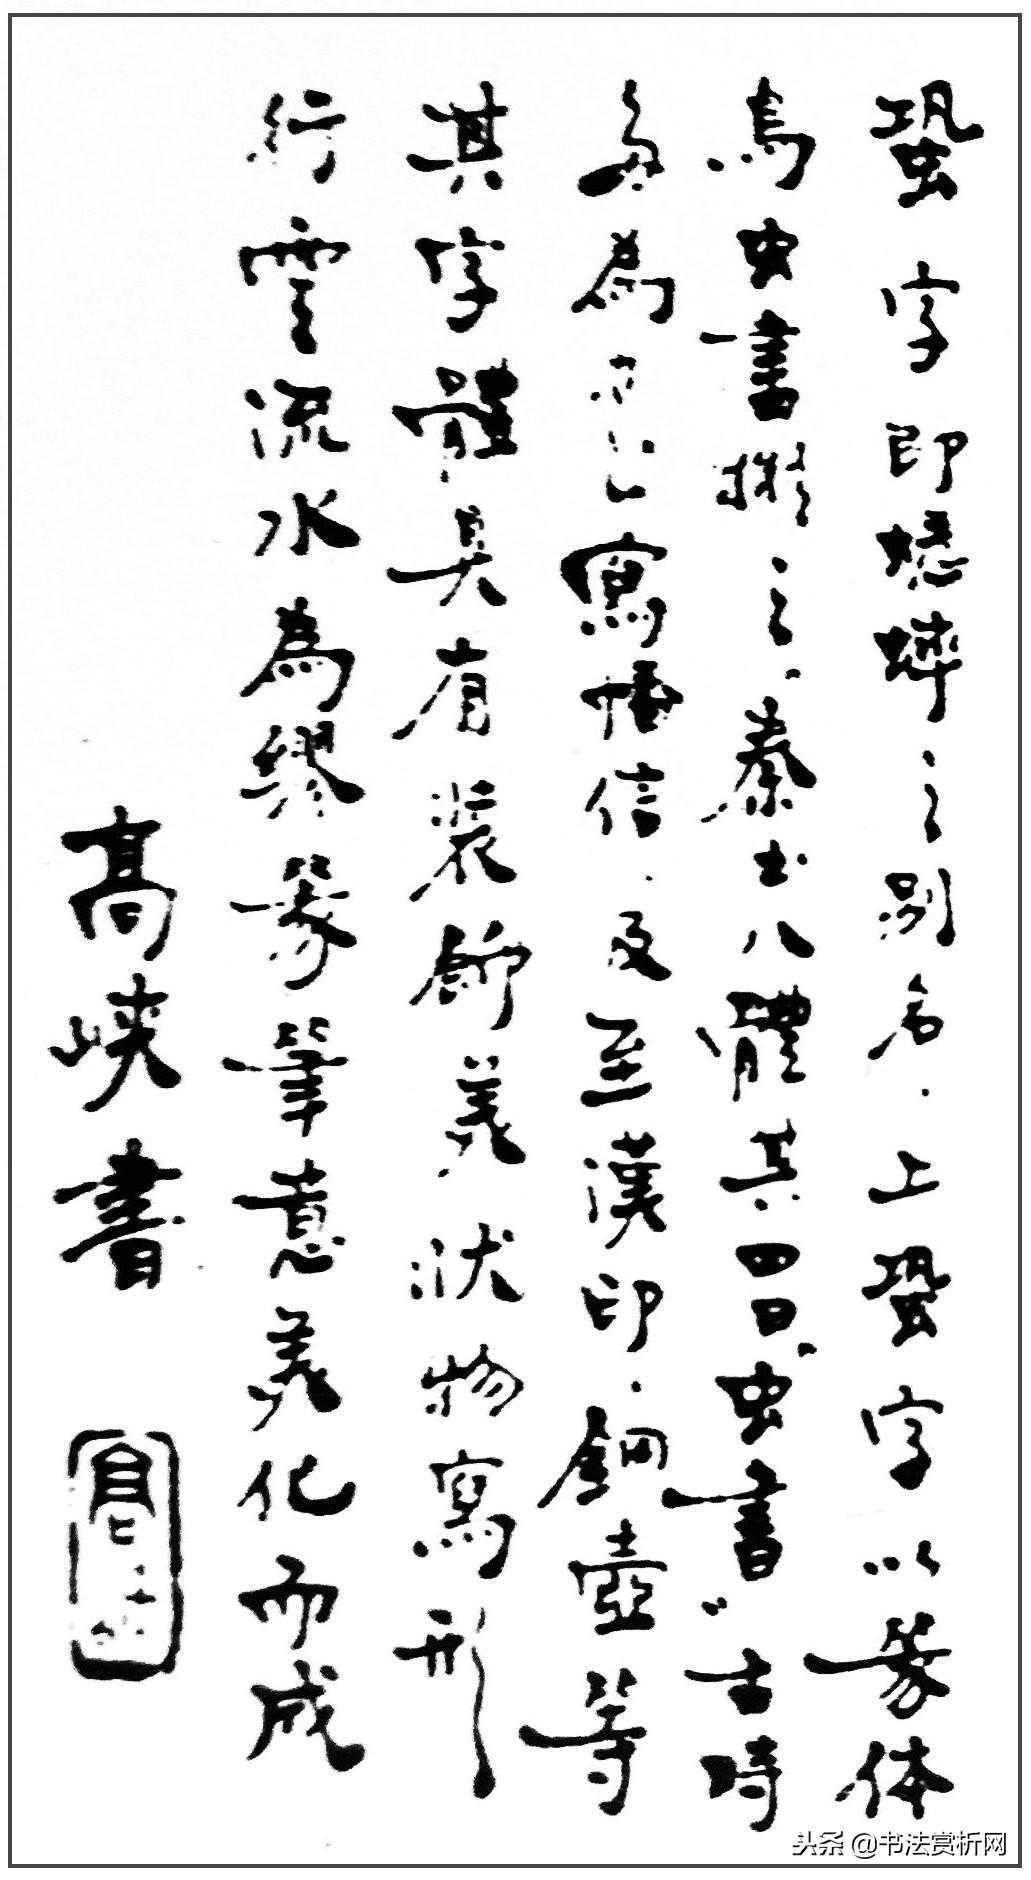 蛩字即蟋蟀之别名．上蛩字以篆体
鳥虫書擬之．秦书八體其四曰〝虫書〞古時
多為寫幡信．及至漢印．銅壺等
其字體具有裝飾美狀物寫形
行雲流水為繆篆筆意美化而成
高峡書
头条 @书法赏析网